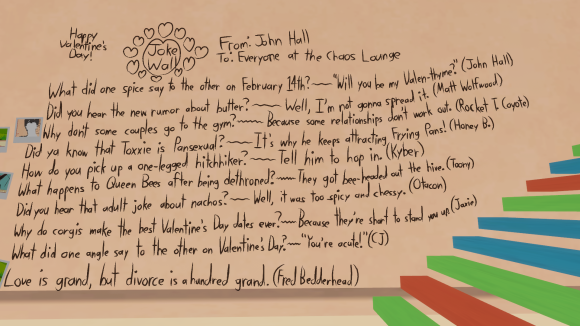 Happy
Valentine's
Day!
Joke
Wall
From: John Hall
To: Everyone at the Chaos Lounge
What did one spice say to the other on February 14th?~~"Will you be my Valen-thyme?" (John Hall)
Did you hear the new rumor about butter?~~ Well, I'm not gonna spread it. (Matt Wolfwood)
Why dont some couples go to the gym?~~ Because some relationships don't work out. (Rocket T. Coyote)
Did ya know that Toxxie is Pansexual?~~ It's why he keeps attracting Frying Pans! (Honey B.)
How do you pick up a one-legged hitchhiker?~~ Tell him to hop in. (Kyber)
What happens to Queen Bees after being dethroned?~~They got bee-headed out the hive. (Toony)
Did you hear that adult joke about nachos?~~ Well, it was too spicy and cheesy. (Otacon)
Why do corgis make the best Valentine's Day dates ever?~~ Because they're short to stand you up. (Jaxie)
What did one angle say to the other on Valentine's Day?~~"You're acute!" (CJ)
Love is grand, but divorce is a hundred grand. (Fred Bedderhead)